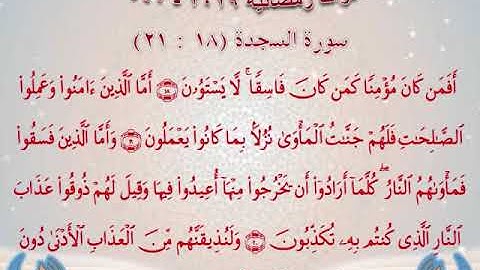 سورة السجدة (١٨ : ٢١)
أَفَمَن كَانَ مُؤْمِنًا كَمَن كَانَ فَاسِقًا ۚ لَّا يَسْتَوُۥنَ ١٨ أَمَّا الَّذِينَ ءَامَنُوا۟ وَعَمِلُوا۟
الصَّٰلِحَٰتِ فَلَهُمْ جَنَّٰتُ الْمَأْوَىٰ نُزُلًۢا بِمَا كَانُوا۟ يَعْمَلُونَ ١٩ وَأَمَّا الَّذِينَ فَسَقُوا۟
فَمَأْوَىٰهُمُ النَّارُ ۖ كُلَّمَآ أَرَادُوٓا۟ أَن يَخْرُجُوا۟ مِنْهَآ أُعِيدُوا۟ فِيهَا وَقِيلَ لَهُمْ ذُوقُوا۟ عَذَابَ
النَّارِ الَّذِى كُنتُم بِهِۦ تُكَذِّبُونَ ٢٠ وَلَنُذِيقَنَّهُم مِّنَ الْعَذَابِ الْأَدْنَىٰ دُونَ